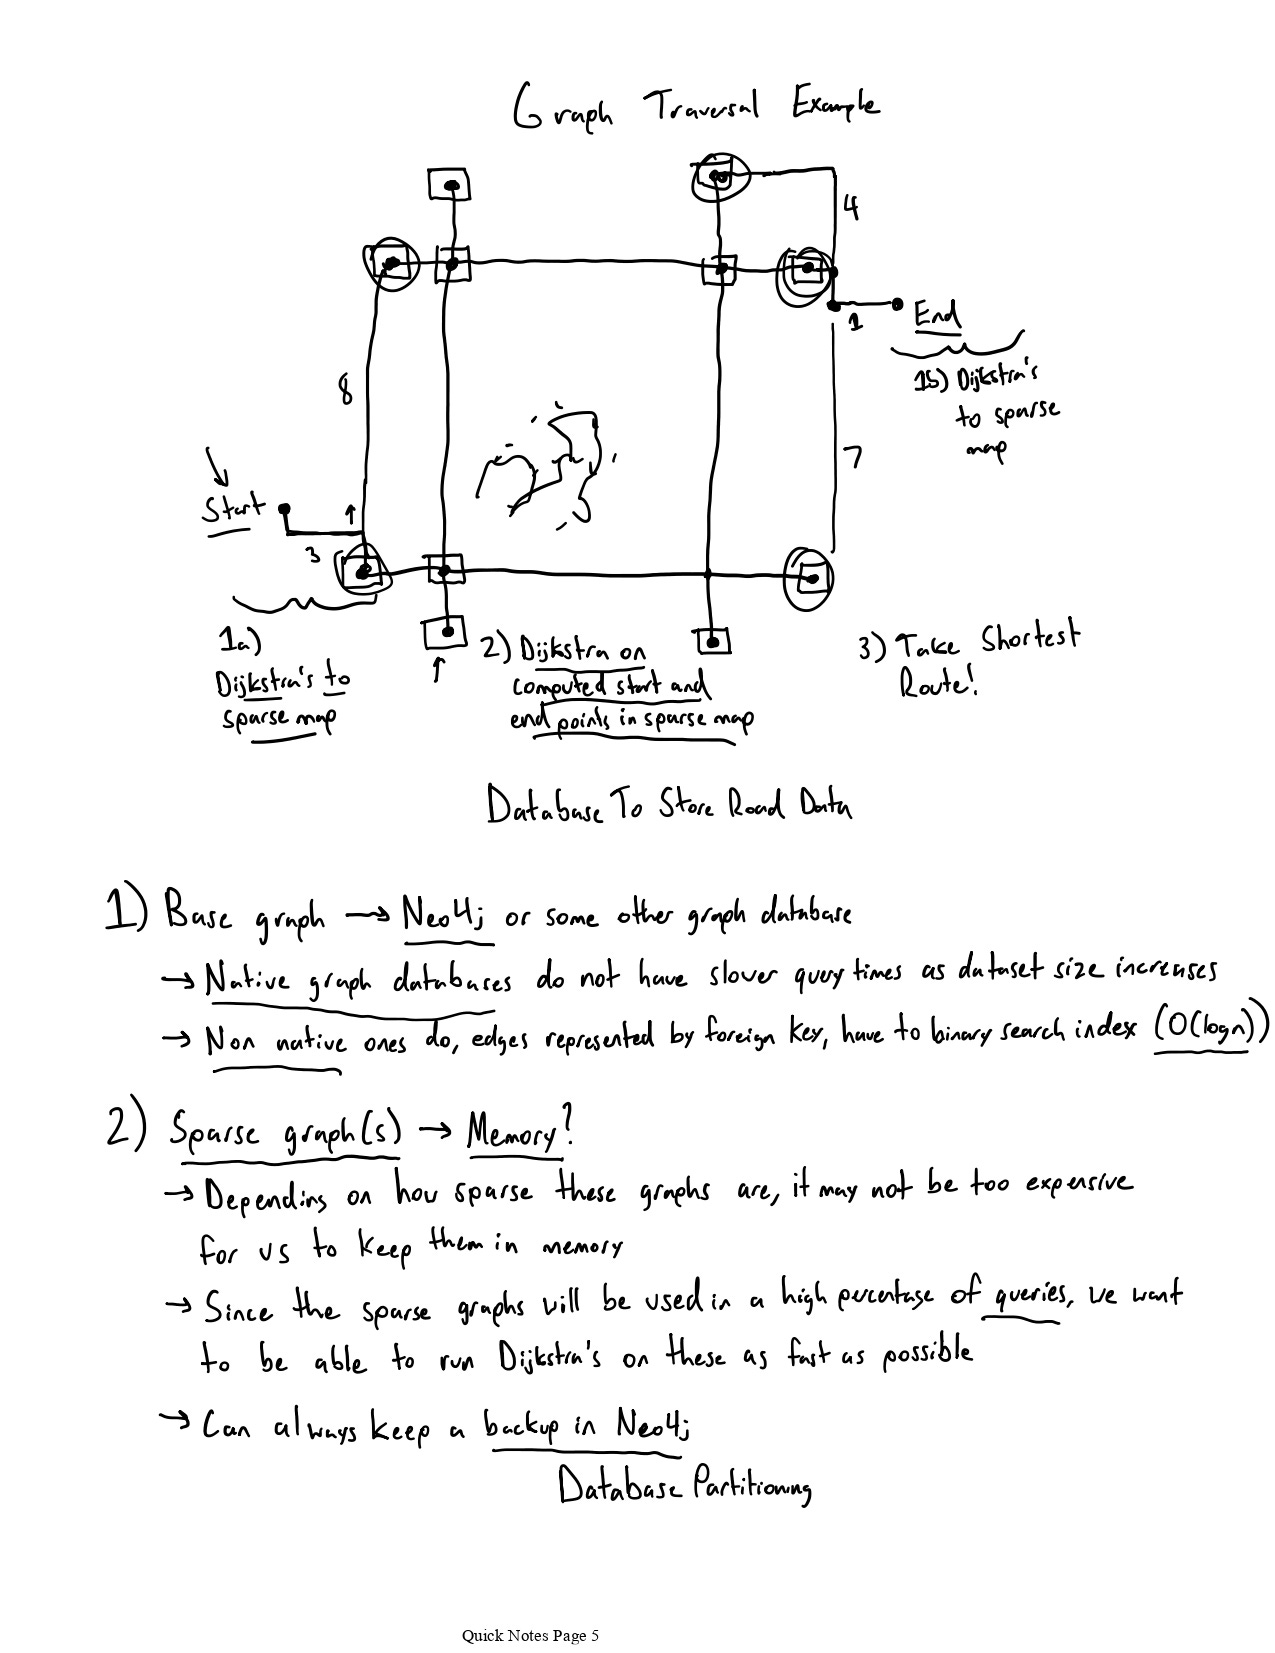 Graph Traversal Example
4
End
1
1b) Dijkstra's
to sparse
map
8
7
Start
3
1a)
Dijkstra's to
sparse map
2) Dijkstra on
computed start and
end points in sparse map
3) Take Shortest
Route!
Database To Store Road Data
1) Base graph → Neo4j or some other graph database
→ Native graph databases do not have slower query times as dataset size increases
→ Non native ones do, edges represented by foreign key, have to binary search index (O(logn))
2) Sparse graph(s) → Memory?
→ Depending on how sparse these graphs are, it may not be too expensive
for us to keep them in memory
→ Since the sparse graphs will be used in a high percentage of queries, we want
to be able to run Dijkstra's on these as fast as possible
→ Can always keep a backup in Neo4j
Database Partitioning
Quick Notes Page 5